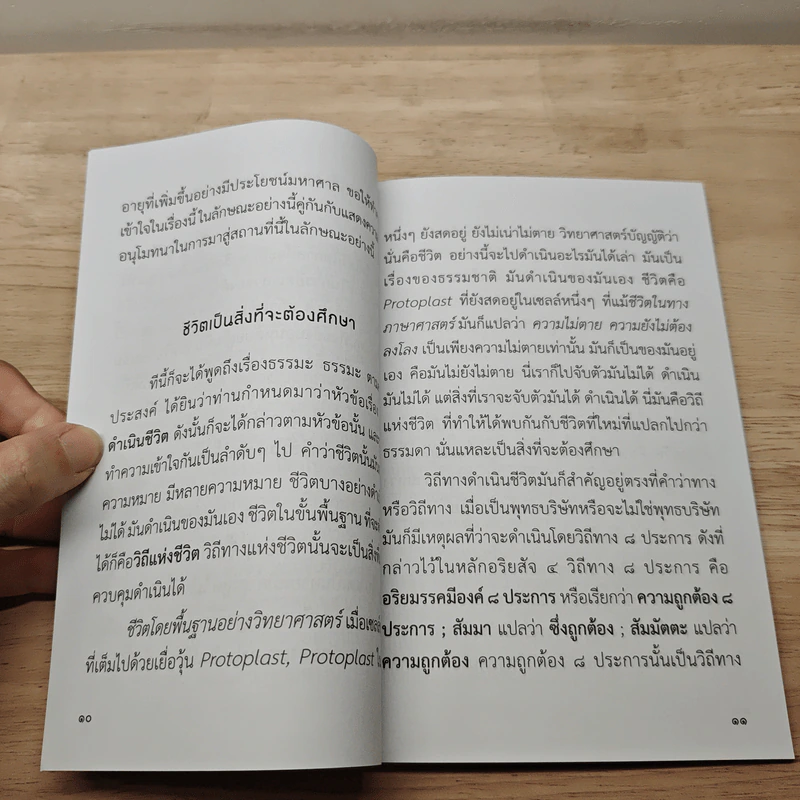 อายุที่เพิ่มขึ้นอย่างมีประโยชน์มหาศาล ขอให้
เข้าใจในเรื่องนี้ ในลักษณะอย่างนี้คู่กันกับแสดงความ
อนุโมทนาในการมาสู่สถานที่นี้ในลักษณะอย่างนี้
ชีวิตเป็นสิ่งที่จะต้องศึกษา
ทีนี้ก็จะได้พูดถึงเรื่องธรรมะ ธรรมะ ตาม
ประสงค์ ได้ยินว่าท่านกำหนดมาว่าหัวข้อเรื่อง
ดำเนินชีวิต ดังนั้นก็จะได้กล่าวตามหัวข้อนั้น และ
ทำความเข้าใจกันเป็นลำดับๆ ไป คำว่าชีวิตนั้น
ความหมาย มีหลายความหมาย ชีวิตบางอย่างดำ
ไม่ได้ มันดำเนินของมันเอง ชีวิตในขั้นพื้นฐาน ที่จะ
ได้ก็คือวิถีแห่งชีวิต วิถีทางแห่งชีวิตนั้นจะเป็นสิ่งที่
ควบคุมดำเนินได้
ชีวิตโดยพื้นฐานอย่างวิทยาศาสตร์ เมื่อเซลล์
ที่เต็มไปด้วยเยื่อวุ้น Protoplast, Protoplast ใ
๑๐
หนึ่งๆ ยังสดอยู่ ยังไม่เน่าไม่ตาย วิทยาศาสตร์บัญญัติว่า
นั่นคือชีวิต อย่างนี้จะไปดำเนินอะไรมันได้เล่า มันเป็น
เรื่องของธรรมชาติ มันดำเนินของมันเอง ชีวิตคือ
Protoplast ที่ยังสดอยู่ในเซลล์หนึ่งๆ ที่แม้ชีวิตในทาง
ภาษาศาสตร์ มันก็แปลว่า ความไม่ตาย ความยังไม่ต้อง
ลงโลง เป็นเพียงความไม่ตายเท่านั้น มันก็เป็นของมันอยู่
เอง คือมันไม่ยังไม่ตาย นี่เราก็ไปจับตัวมันไม่ได้ ดำเนิน
มันไม่ได้ แต่สิ่งที่เราจะจับตัวมันได้ ดำเนินได้ นี่มันคือวิถี
แห่งชีวิต ที่ทำให้ได้พบกันกับชีวิตที่ใหม่ที่แปลกไปกว่า
ธรรมดา นั่นแหละเป็นสิ่งที่จะต้องศึกษา
วิถีทางดำเนินชีวิตมันก็สำคัญอยู่ตรงที่คำว่าทาง
หรือวิถีทาง เมื่อเป็นพุทธบริษัทหรือจะไม่ใช่พุทธบริษัท
มันก็มีเหตุผลที่ว่าจะดำเนินโดยวิถีทาง ๘ ประการ ดังที่
กล่าวไว้ในหลักอริยสัจ ๔ วิถีทาง ๘ ประการ คือ
อริยมรรคมีองค์ ๘ ประการ หรือเรียกว่า ความถูกต้อง ๘
ประการ ; สัมมา แปลว่า ซึ่งถูกต้อง ; สัมมัตตะ แปลว่า
ความถูกต้อง ความถูกต้อง ๘ ประการนั้นเป็นวิถีทาง
๑๑